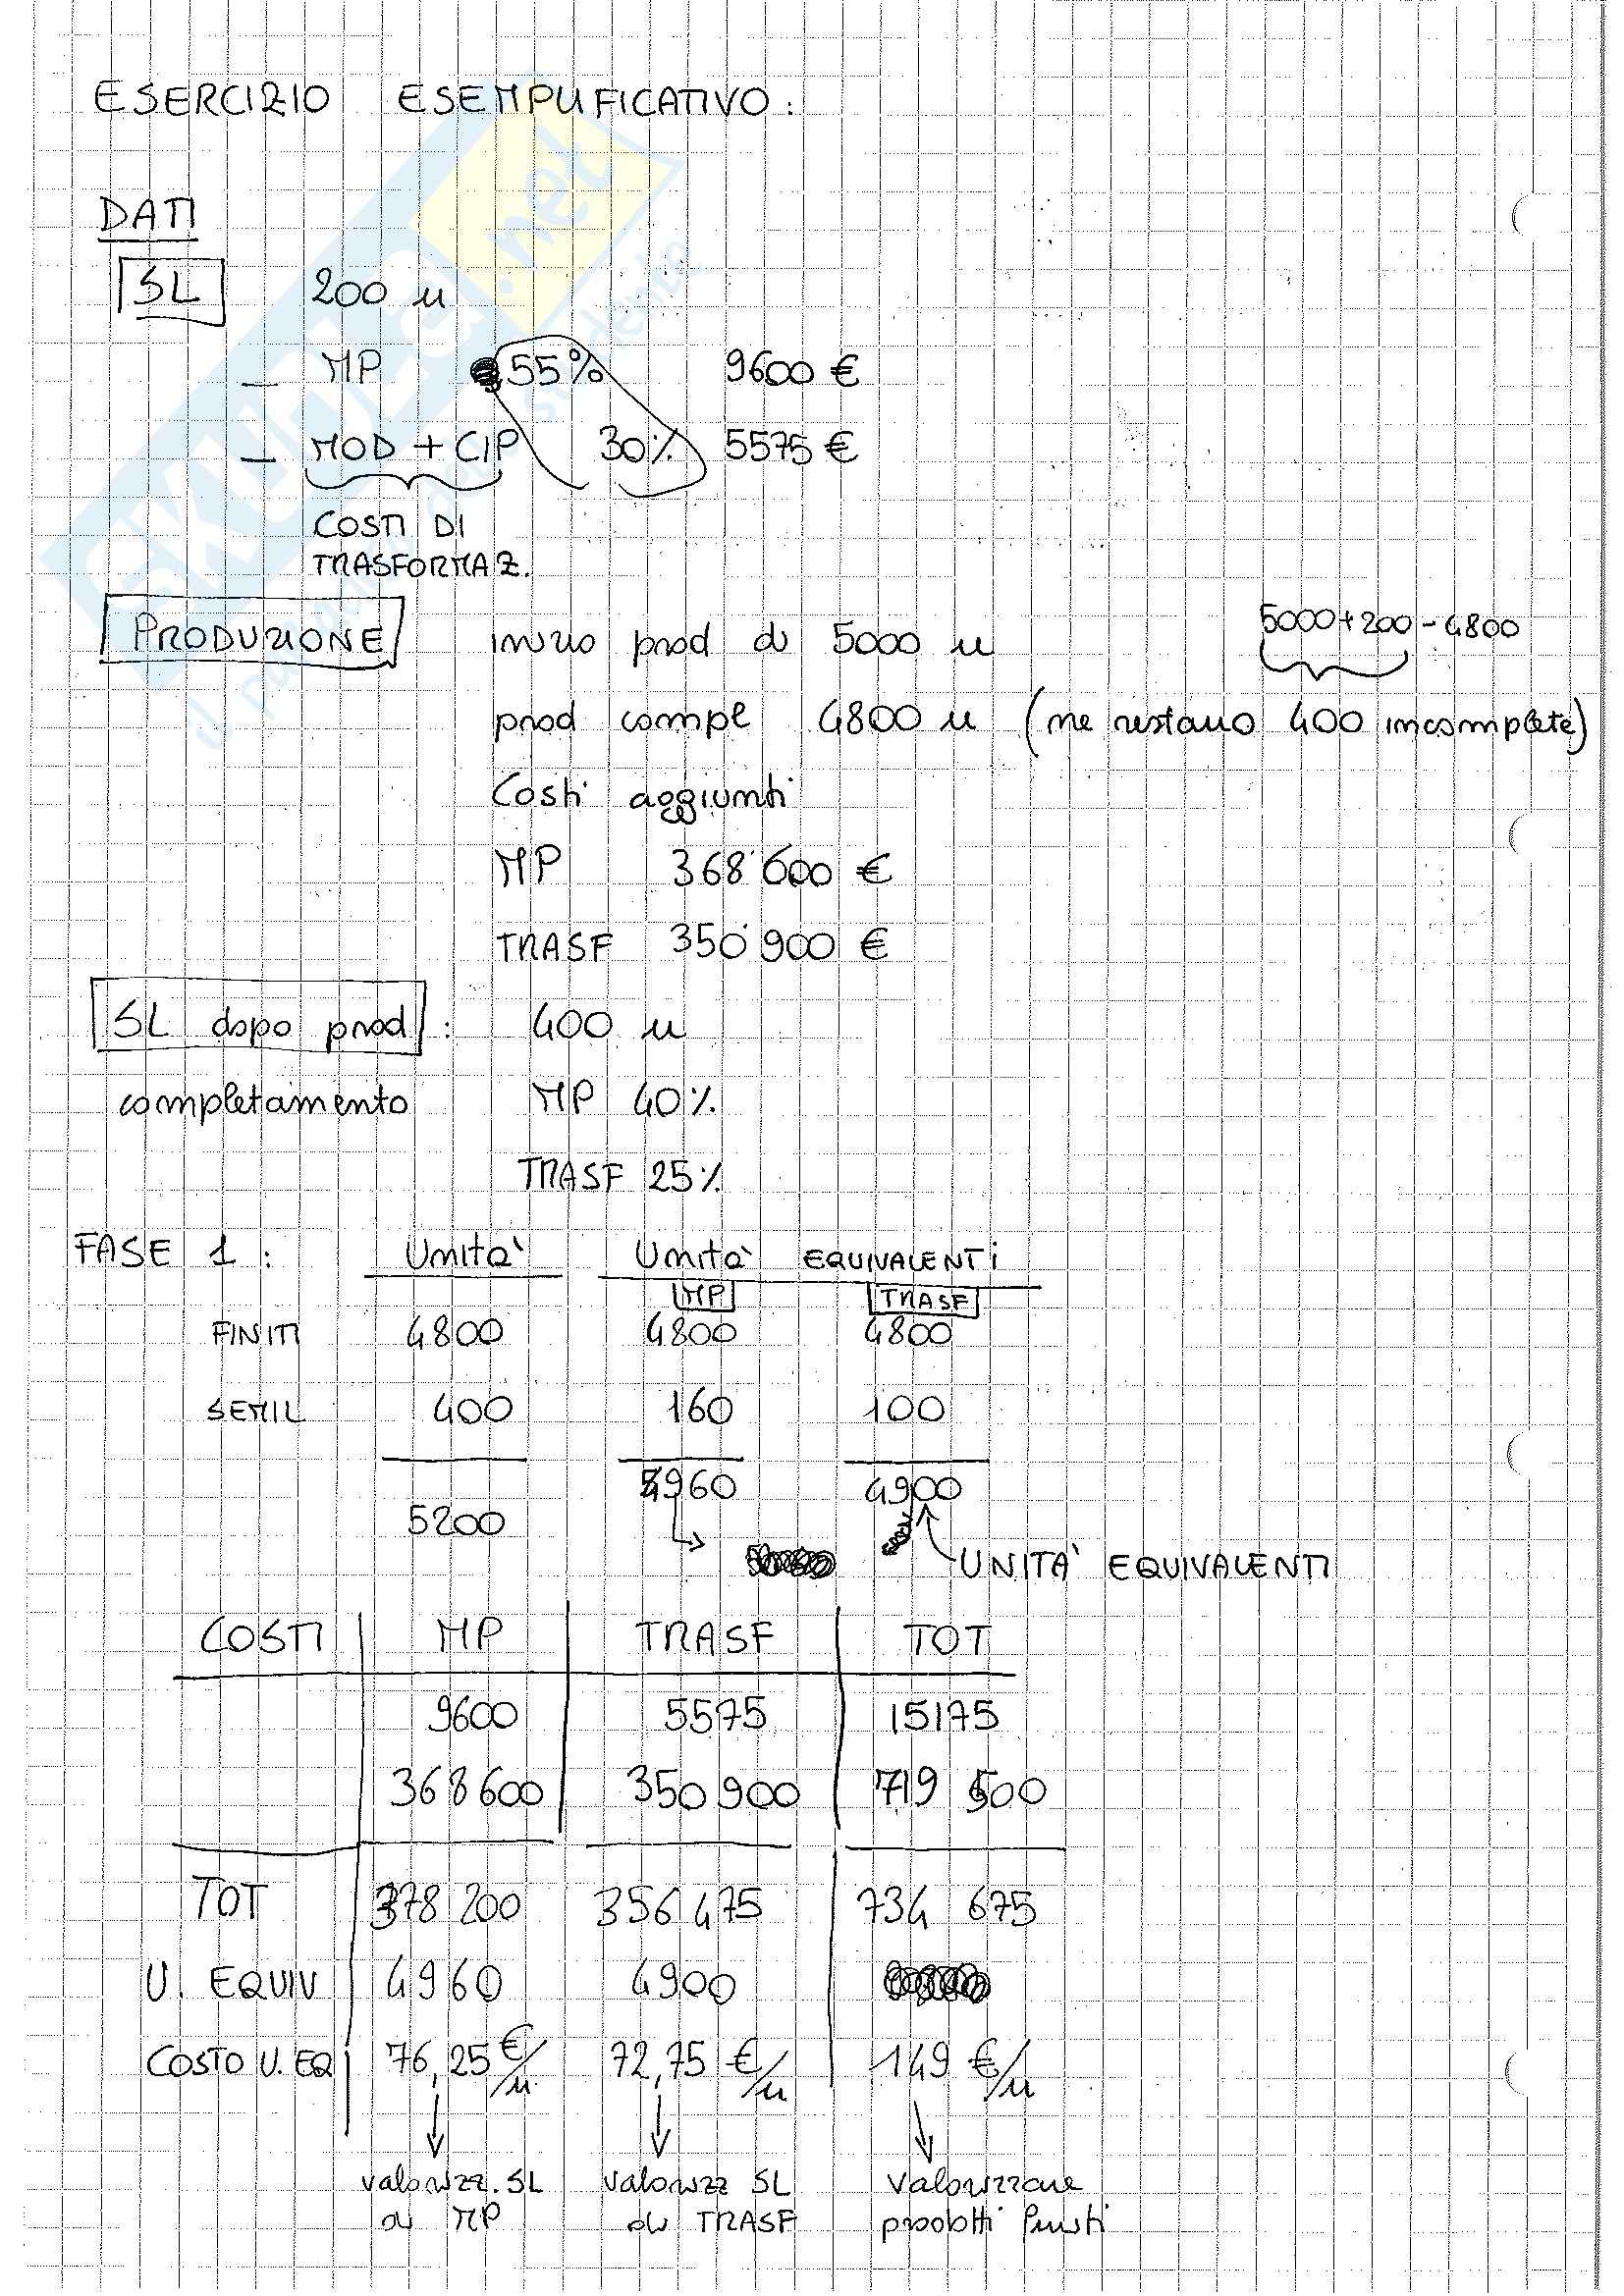 ESERCIZIO ESEMPLIFICATIVO:
DATI
SL 200 u
_ MP 55% 9600 €
_ MOD + CIP 30% 5575 €
COSTI DI
TRASFORMAZ.
PRODUZIONE inizio prod di 5000 u 5000+200-4800
prod compl 4800 u (ne restano 400 incomplete)
Costi aggiunti
MP 368'600 €
TRASF 350'900 €
SL dopo prod: 400 u
completamento MP 40%
TRASF 25%
FASE 1: Unità Unità EQUIVALENTI
MP TRASF
FINITI 4800 4800 4800
SEMIL 400 160 100
5200 4960 4900
UNITÀ EQUIVALENTI
COSTI MP TRASF TOT
9600 5575 15175
368600 350900 719 500
TOT 378 200 356 475 734 675
U. EQUIV 4960 4900
COSTO U. EQ 76,25 €/u 72,75 €/u 149 €/u
valorizz. SL valorizz SL valorizzare
di MP di TRASF prodotti finiti
skuola.net